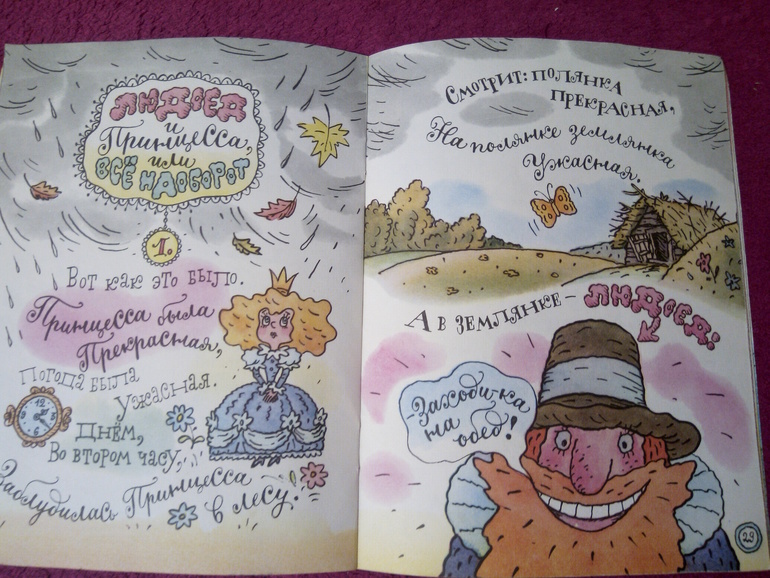 ЛЮДОЕД
и
Принцесса,
или
ВСЁ НАОБОРОТ
1.
Вот как это было.
Принцесса была
Прекрасная,
Погода была
Ужасная.
Днём,
Во втором часу,
Заблудилась Принцесса
в лесу.
Смотрит: полянка
прекрасная,
На полянке землянка
Ужасная.
А в землянке – ЛЮДОЕД:
– Заходи-ка
на
обед!
29